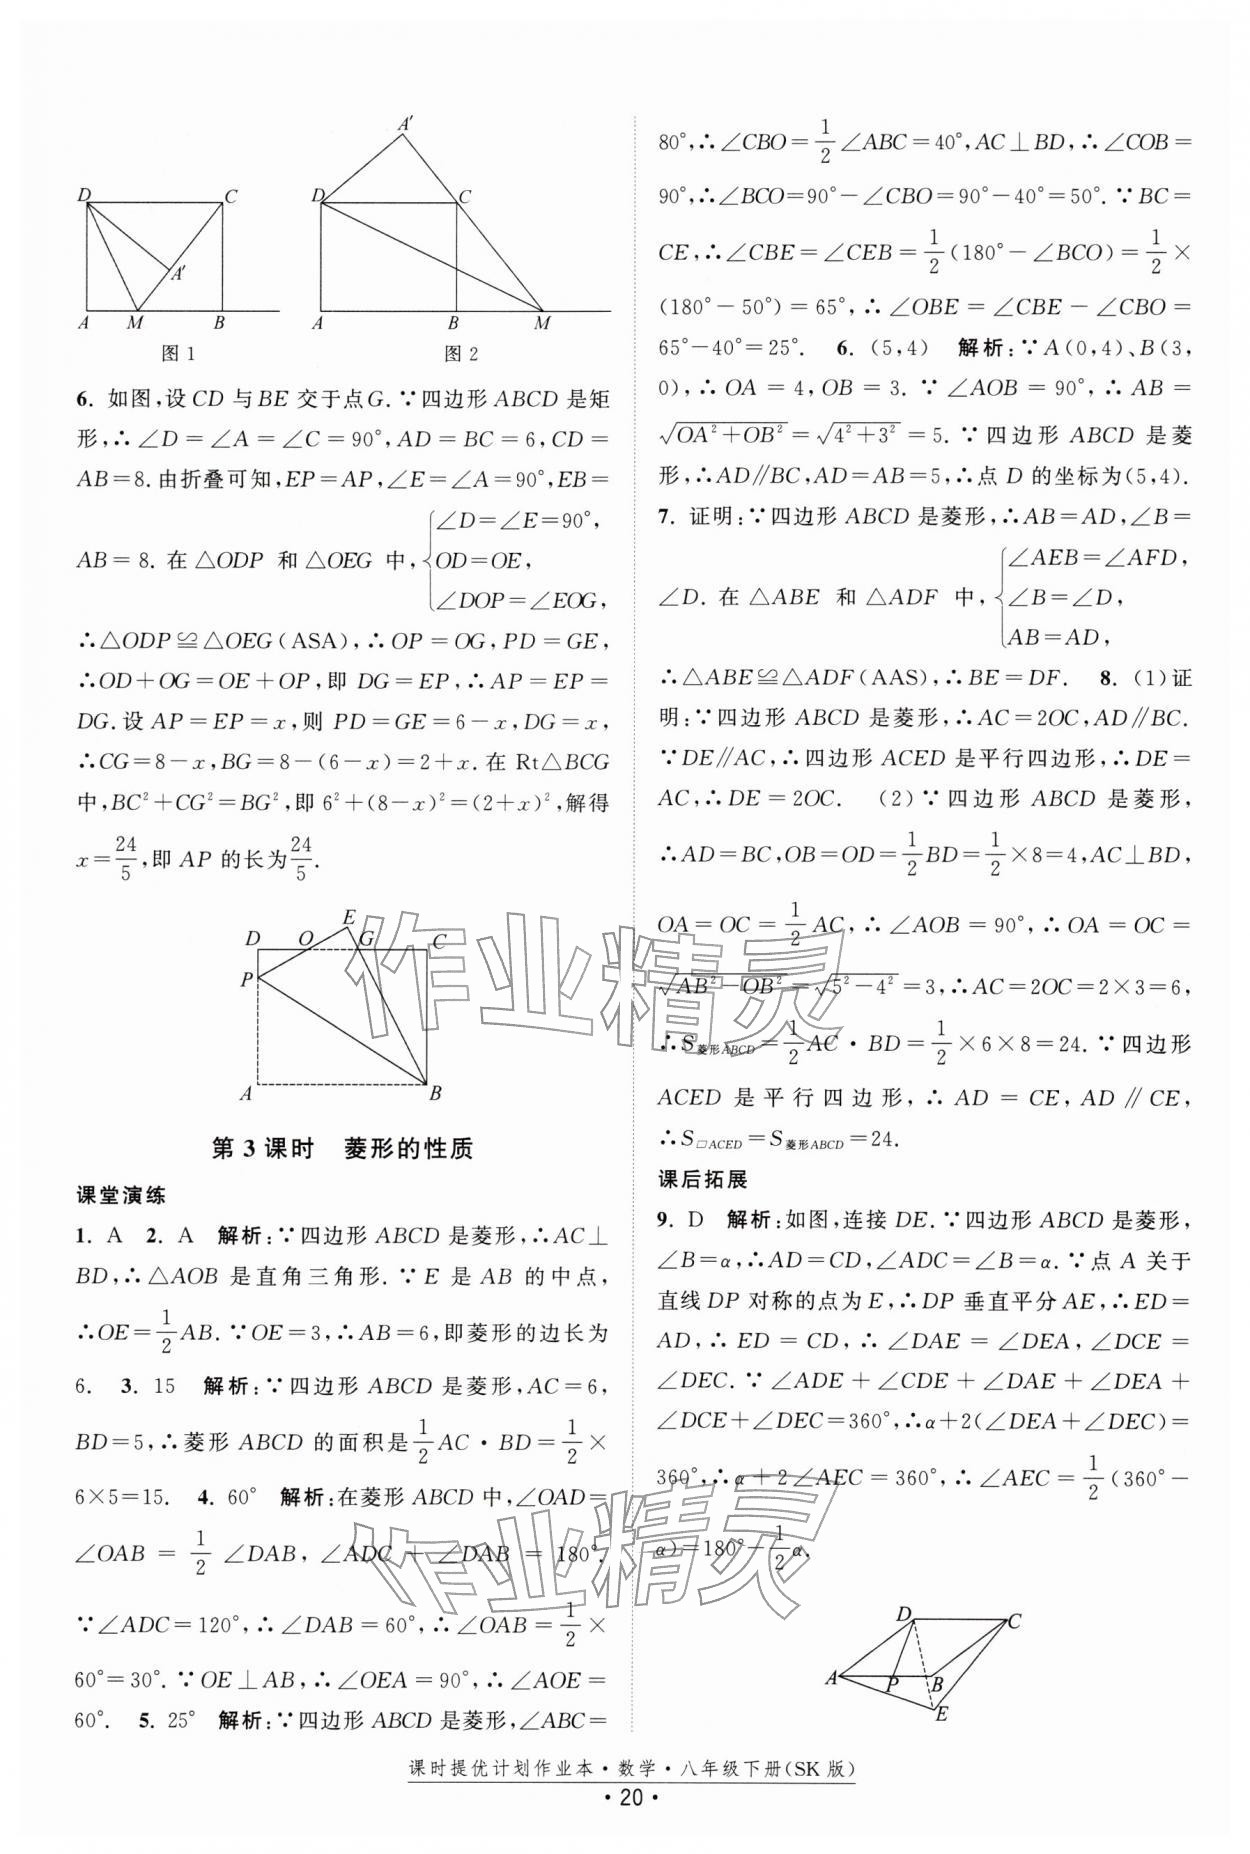 A'
D C
A'
A M B
图 1
A'
D C
A B M
图 2
6. 如图,设 CD 与 BE 交于点 G. ∵四边形 ABCD 是矩
形,∴∠D=∠A=∠C=90°,AD=BC=6,CD=
AB=8. 由折叠可知,EP=AP,∠E=∠A=90°,EB=
AB=8. 在△ODP 和△OEG 中,{∠D=∠E=90°,
OD=OE,
∠DOP=∠EOG,
∴△ODP≌△OEG(ASA),∴OP=OG,PD=GE,
∴OD+OG=OE+OP,即 DG=EP,∴AP=EP=
DG. 设 AP=EP=x,则 PD=GE=6-x,DG=x,
∴CG=8-x,BG=8-(6-x)=2+x. 在 Rt△BCG
中,BC²+CG²=BG²,即 6²+(8-x)²=(2+x)²,解得
x=24/5,即 AP 的长为24/5.
E
D O G C
P
A B
第 3 课时 菱形的性质
课堂演练
1. A 2. A 解析:∵四边形 ABCD 是菱形,∴AC⊥
BD,∴△AOB 是直角三角形. ∵E 是 AB 的中点,
∴OE=1/2AB. ∵OE=3,∴AB=6,即菱形的边长为
6. 3. 15 解析:∵四边形 ABCD 是菱形,AC=6,
BD=5,∴菱形 ABCD 的面积是1/2AC·BD=1/2×
6×5=15. 4. 60° 解析:在菱形 ABCD 中,∠OAD=
∠OAB=1/2∠DAB,∠ADC+∠DAB=180°.
∵∠ADC=120°,∴∠DAB=60°,∴∠OAB=1/2×
60°=30°. ∵OE⊥AB,∴∠OEA=90°,∴∠AOE=
60°. 5. 25° 解析:∵四边形 ABCD 是菱形,∠ABC=
80°,∴∠CBO=1/2∠ABC=40°,AC⊥BD,∴∠COB=
90°,∴∠BCO=90°-∠CBO=90°-40°=50°. ∵BC=
CE,∴∠CBE=∠CEB=1/2(180°-∠BCO)=1/2×
(180°-50°)=65°,∴∠OBE=∠CBE-∠CBO=
65°-40°=25°. 6. (5,4) 解析:∵A(0,4)、B(3,
0),∴OA=4,OB=3. ∵∠AOB=90°,∴AB=
√(OA²+OB²)=√(4²+3²)=5. ∵四边形 ABCD 是菱
形,∴AD∥BC,AD=AB=5,∴点 D 的坐标为(5,4).
7. 证明:∵四边形 ABCD 是菱形,∴AB=AD,∠B=
∠D. 在△ABE 和△ADF 中,{∠AEB=∠AFD,
∠B=∠D,
AB=AD,
∴△ABE≌△ADF(AAS),∴BE=DF. 8. (1)证
明:∵四边形 ABCD 是菱形,∴AC=2OC,AD∥BC.
∵DE∥AC,∴四边形 ACED 是平行四边形,∴DE=
AC,∴DE=2OC. (2)∵四边形 ABCD 是菱形,
∴AD=BC,OB=OD=1/2BD=1/2×8=4,AC⊥BD,
OA=OC=1/2AC,∴∠AOB=90°,∴OA=OC=
√(AB²-OB²)=√(5²-4²)=3,∴AC=2OC=2×3=6,
∴S菱形ABCD=1/2AC·BD=1/2×6×8=24. ∵四边形
ACED 是平行四边形,∴AD=CE,AD∥CE,
∴S▱ACED=S菱形ABCD=24.
课后拓展
9. D 解析:如图,连接 DE. ∵四边形 ABCD 是菱形,
∠B=α,∴AD=CD,∠ADC=∠B=α. ∵点 A 关于
直线 DP 对称的点为 E,∴DP 垂直平分 AE,∴ED=
AD,∴ED=CD,∴∠DAE=∠DEA,∠DCE=
∠DEC. ∵∠ADE+∠CDE+∠DAE+∠DEA+
∠DCE+∠DEC=360°,∴α+2(∠DEA+∠DEC)=
360°,∴α+2∠AEC=360°,∴∠AEC=1/2(360°-
α)=180°-1/2α.
D C
A P B
E
作业精灵
作业精灵
课时提优计划作业本·数学·八年级下册(SK 版)
·20·